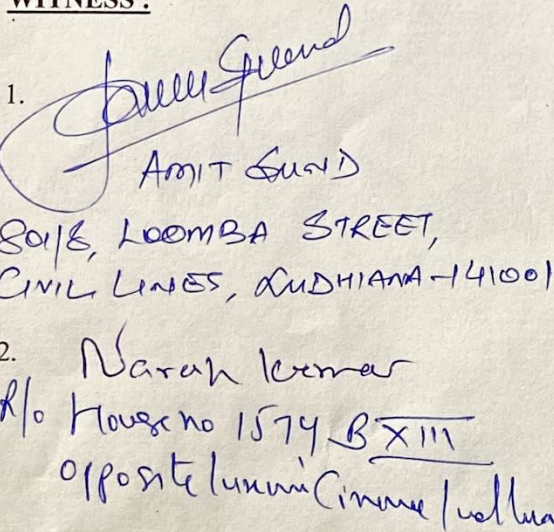 WITNESS :
1.
AMIT GUND
801/8, LOOMBA STREET,
CIVIL LINES, LUDHIANA-141001
2. Narah kumar
R/o House no 1574 B XIII
opposite Cinema